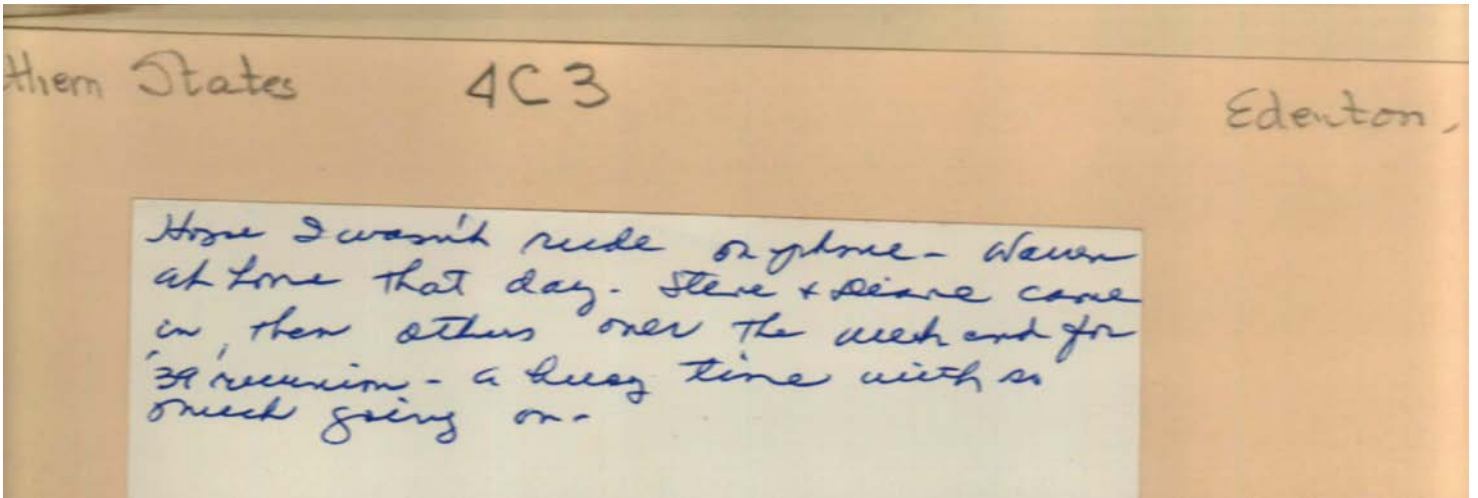 thern States 4C3 Edenton,
Hope I wasn't rude on phone - Warren
at home that day. Steve + Diane came
in, then others over the week end for
'39 reunion - a busy time with so
much going on -